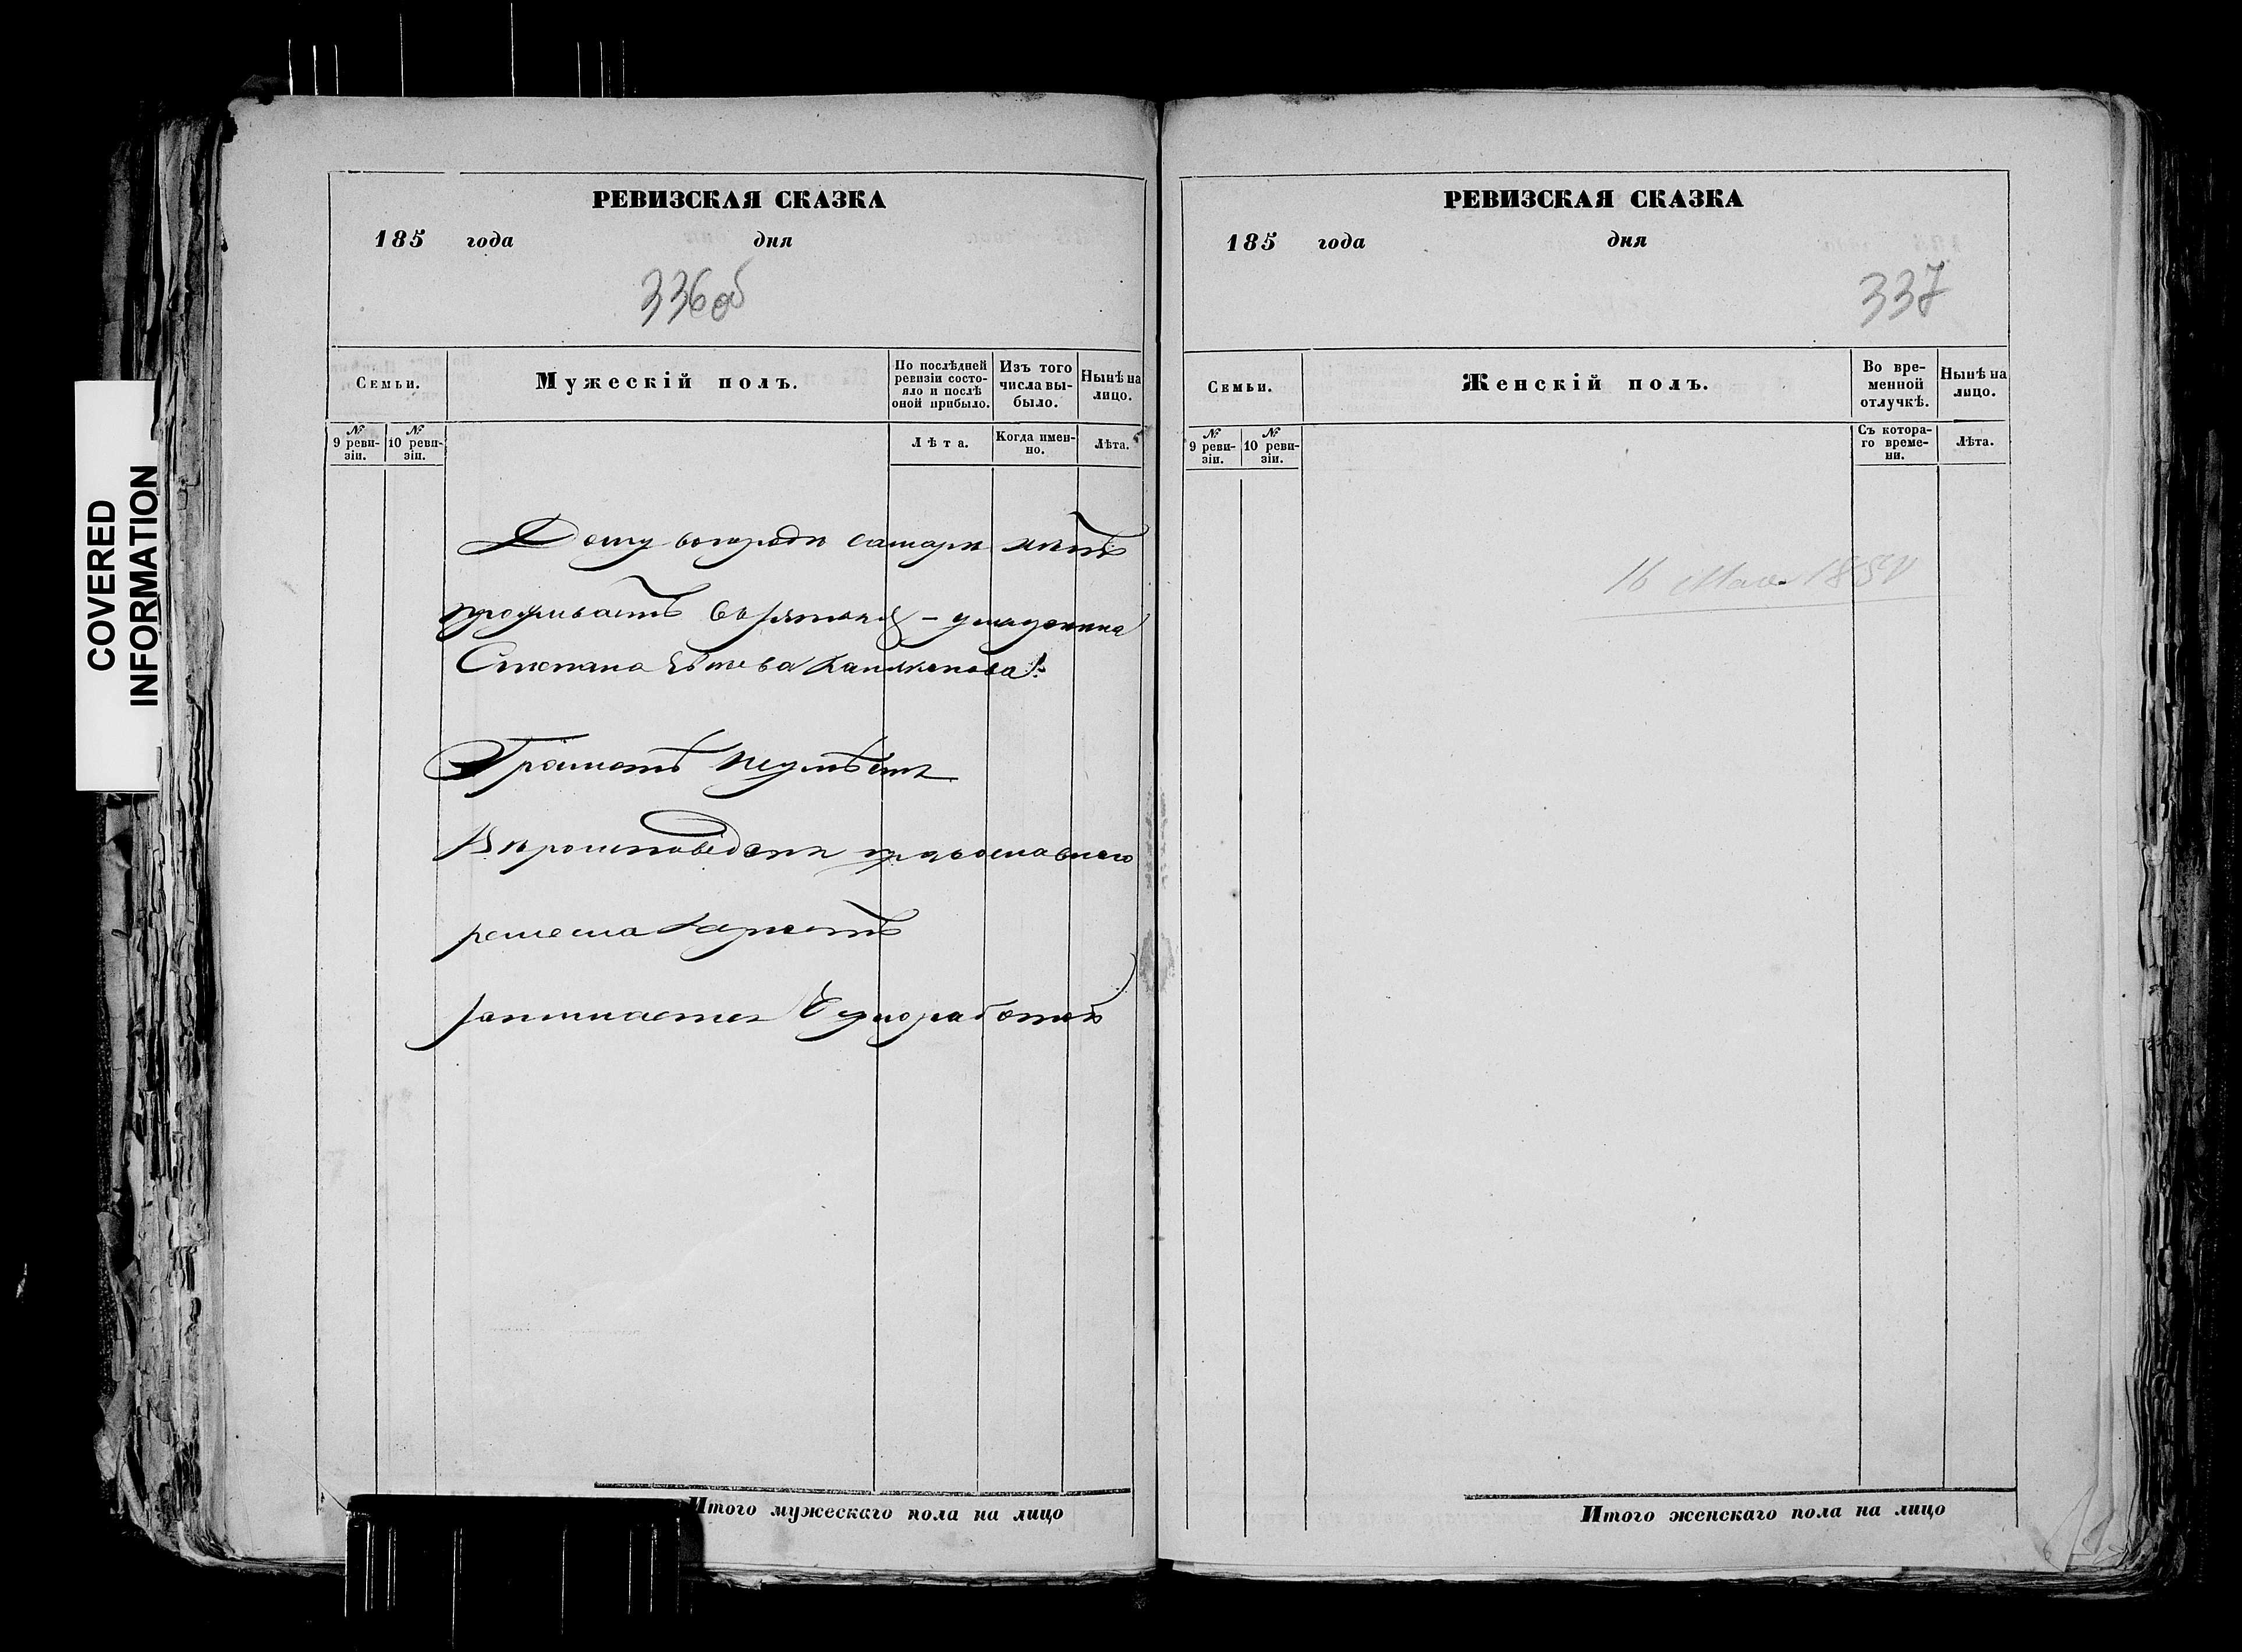 COVERED
INFORMATION
РЕВИЗСКАЯ СКАЗКА
185 года дня
336 об
Семьи.
Мужескій полъ.
По послѣдней ревизіи состояло и послѣ оной прибыло.
Изъ того числа выбыло.
Нынѣ на лицо.
№ 9 ревизіи.
№ 10 ревизіи.
Лѣта.
Когда именно.
Лѣта.
Дому вогороде самаре неимѣ
проживаетъ
Степана
Грамотѣ неумѣетъ
Вероисповеданя православнаго
ремесла
занимается Чорноработой
Итого мужескаго пола на лицо
РЕВИЗСКАЯ СКАЗКА
185 года дня
337
Семьи.
Женскій полъ.
Во временной отлучкѣ.
Нынѣ на лицо.
№ 9 ревизіи.
№ 10 ревизіи.
Съ котораго времени.
Лѣта.
16 Мая
Итого женскаго пола на лицо